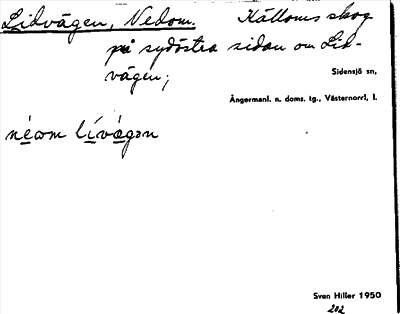 Lidvägen, Nedom. Källoms skog
på sydöstra sidan om Lid-
vägen;
Sidensjö sn,
Ångermanl. n. doms. tg., Västernorrl. l.
néom lívágən
Sven Hiller 1950
202